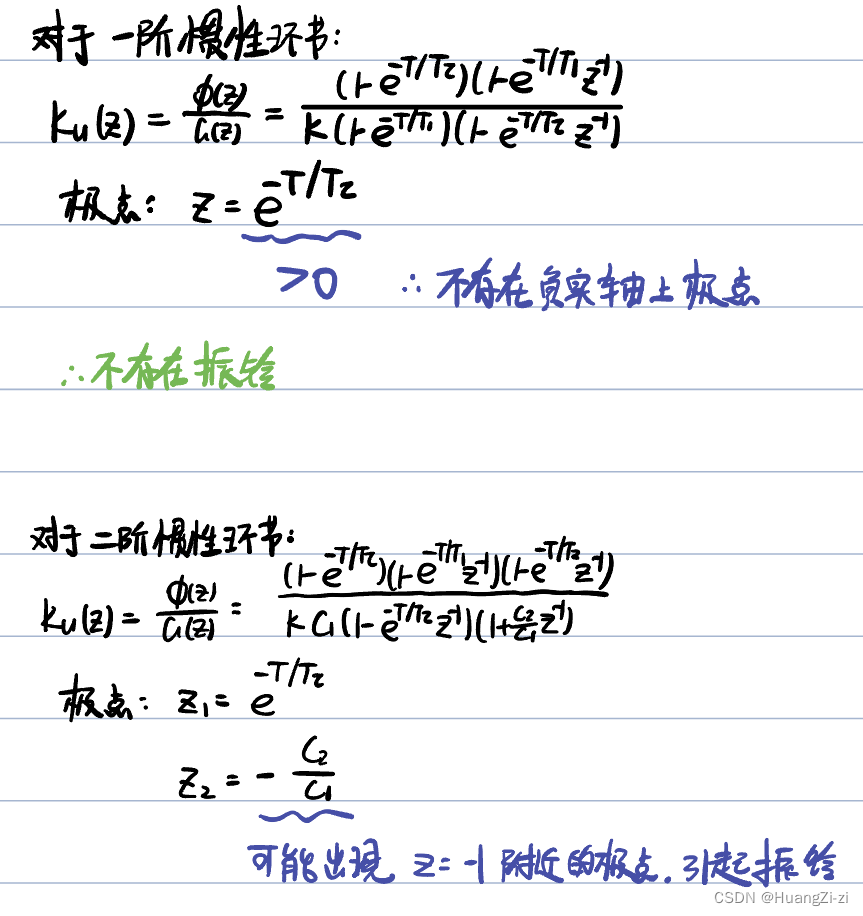 对于一阶惯性环节:
Ku(z) = Φ(z)/G(z) = (1-e^{-T/Tτ})(1-e^{-T/T1}z^{-1}) / K(1-e^{-T/T1})(1-e^{-T/Tτ}z^{-1})
极点: z = e^{-T/Tτ}
>0 ∴不存在负实轴上极点
∴不存在振铃
对于二阶惯性环节:
Ku(z) = Φ(z)/G(z) = (1-e^{-T/Tτ})(1-e^{-T/T1}z^{-1})(1-e^{-T/T2}z^{-1}) / KC1(1-e^{-T/Tτ}z^{-1})(1+C2/C1 z^{-1})
极点: z1 = e^{-T/Tτ}
z2 = - C2/C1
可能出现 z=-1 附近的极点, 引起振铃
CSDN @HuangZi-zi